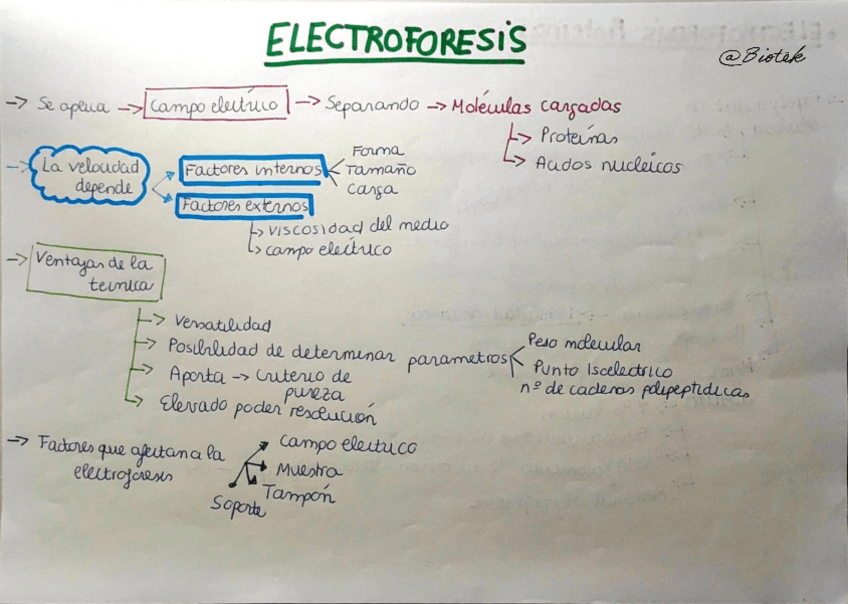 ELECTROFORESIS
@Biotek
→ Se aplica → Campo eléctrico → Separando → Moléculas cargadas
→ Proteínas
→ Acidos nucleicos
→ La velocidad depende
Factores internos
Forma
Tamaño
Carga
Factores externos
→ viscosidad del medio
→ campo eléctrico
→ Ventajas de la técnica
→ Versatilidad
→ Posibilidad de determinar parametros
Peso molecular
Punto Isoelectrico
nº de cadenas polipeptidicas
→ Aporta → criterio de pureza
→ Elevado poder resolución
→ Factores que afectan a la
electroforesis
Campo electrico
Muestra
Tampón
Soporte